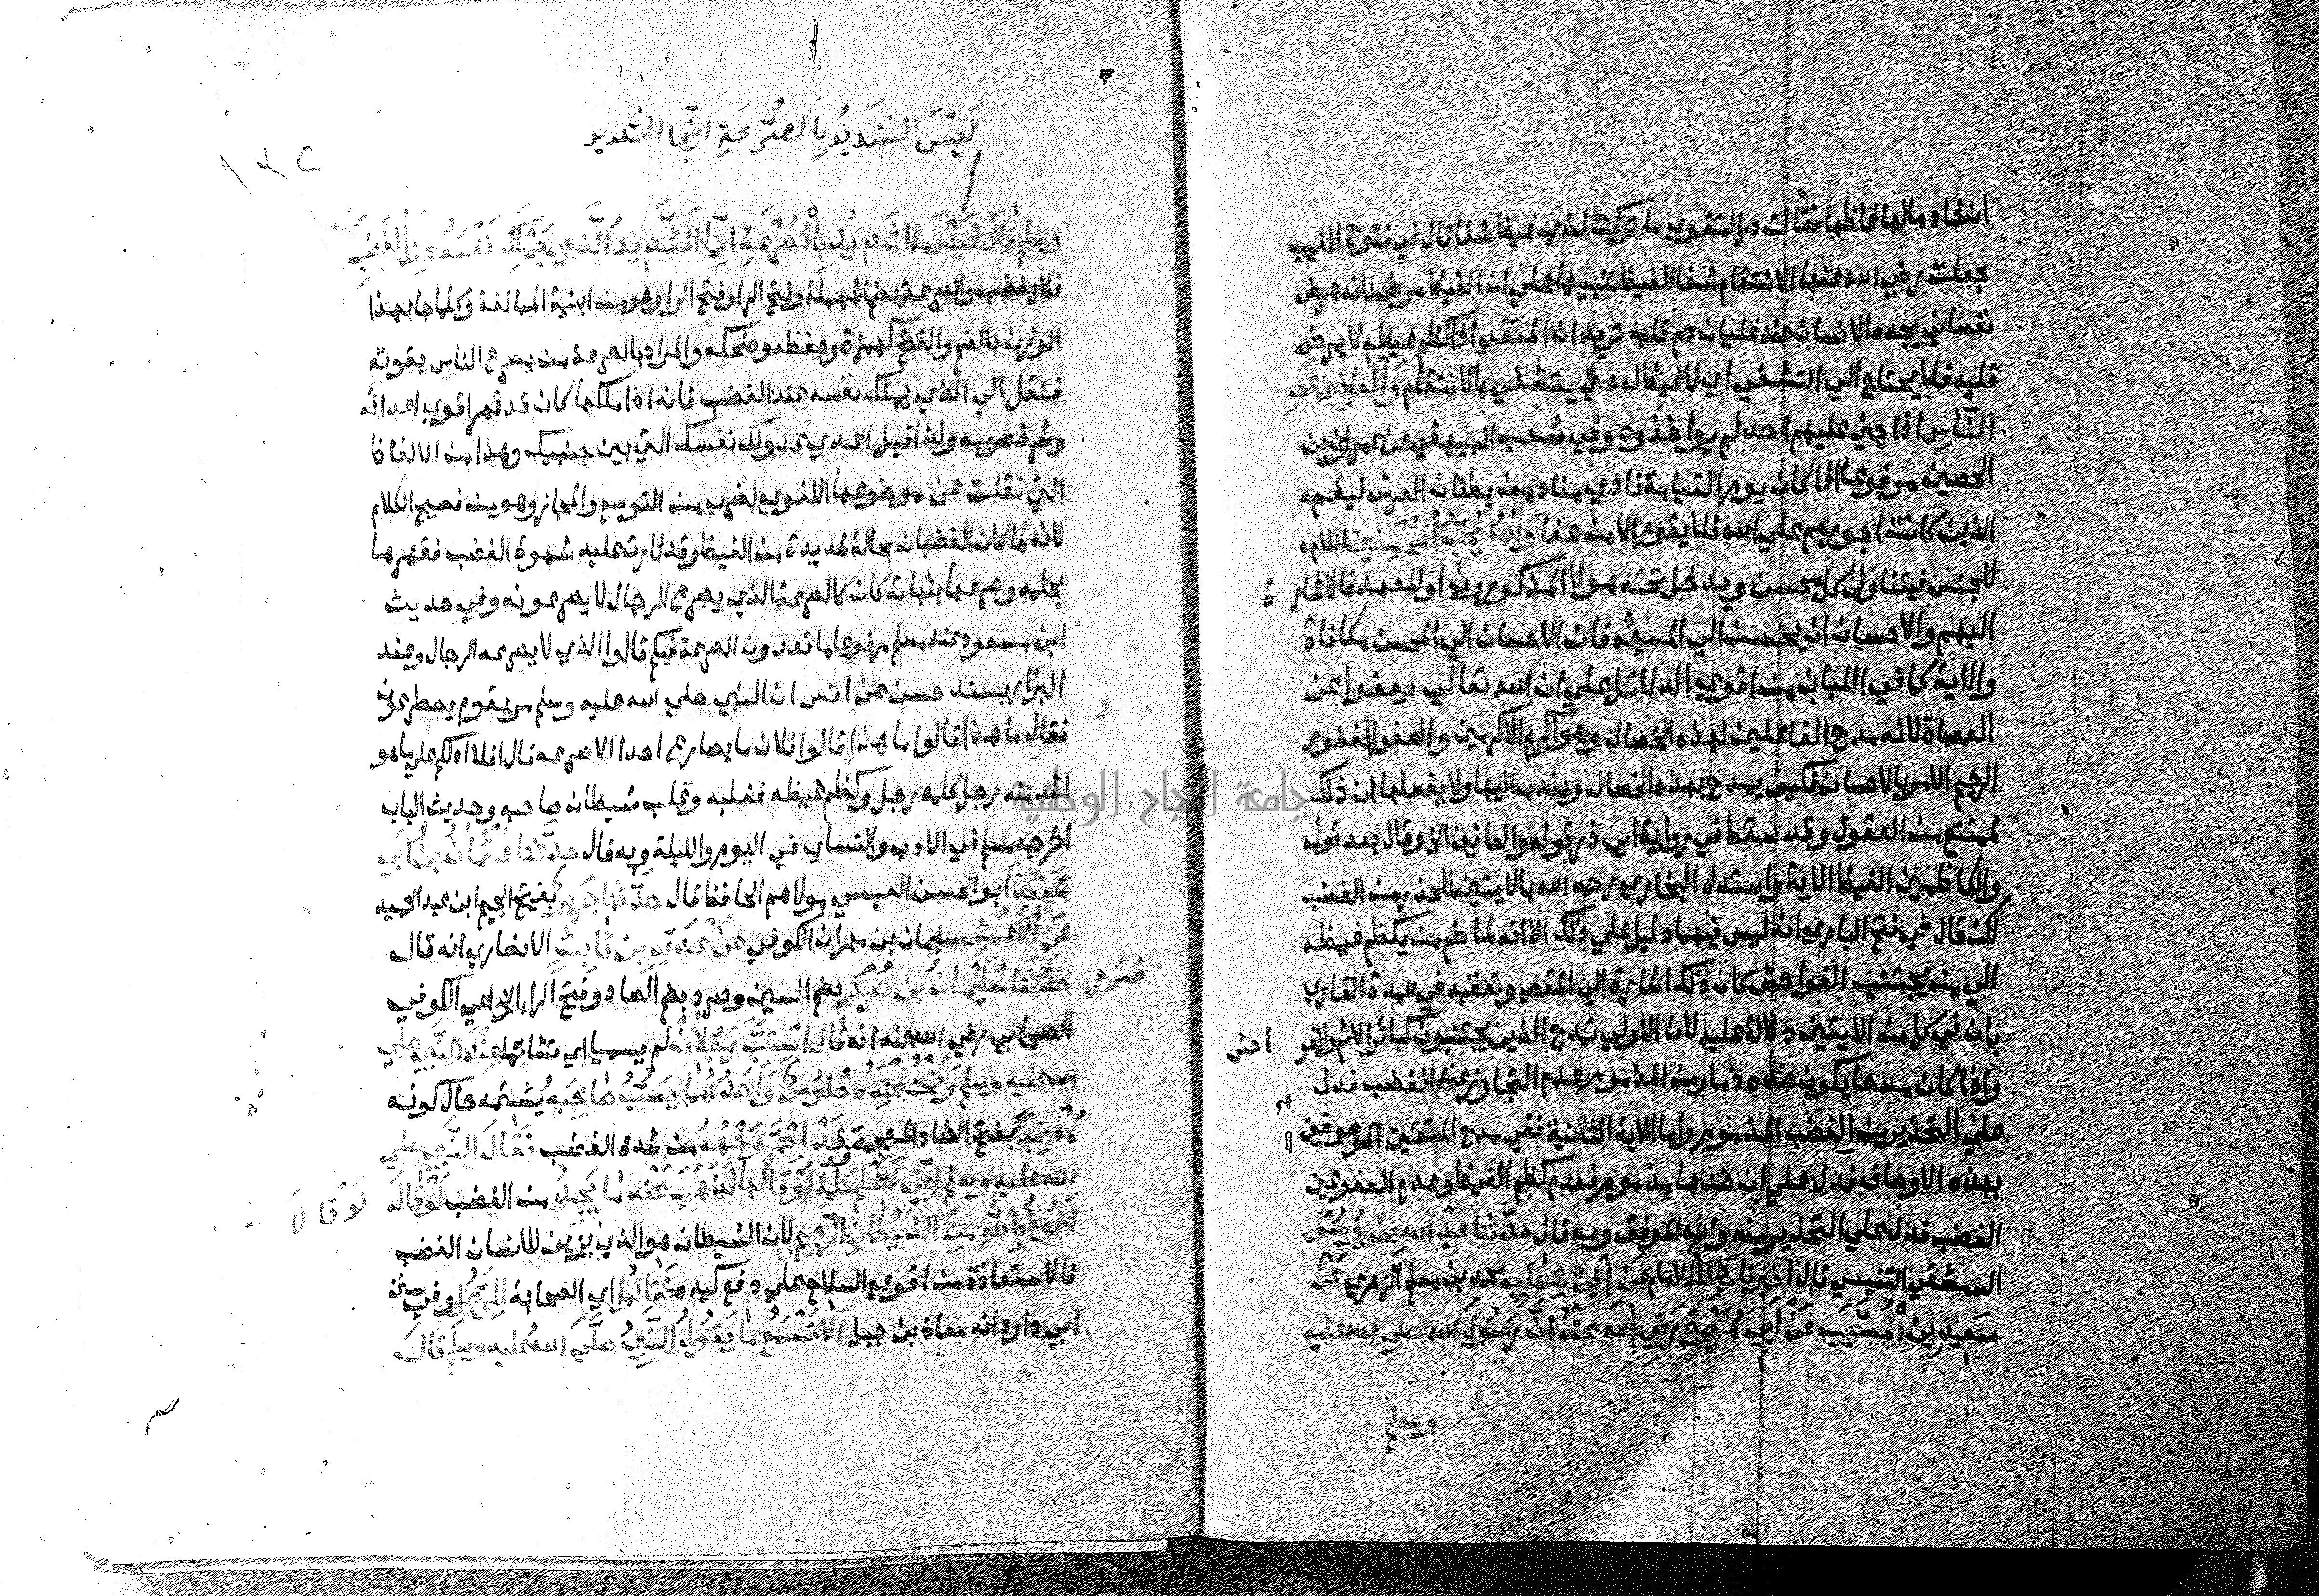 ان خادما لها غاظها فقالت در التقوي ما تركت لذي غيظ شفا قال في فتوح الغيب
جعلت رضي الله عنها الانتقام شفا للغيظ تنبيها علي ان الغيظ مرض لانه عرض
نفساني يجده الانسان عند غليان دم قلبه تريد ان المتقي اذا كظم غيظه لا يمرض
قلبه فلا يحتاج الي التشفي اي لا غيظ له حتي يتشفي بالانتقام وَالْعَافِينَ عَنِ
النَّاسِ اذا جني عليهم احد لم يواخذوه وفي شعب البيهقي عن عمران بن
الحصين مرفوعا اذا كان يوم القيامة نادي مناد من بطنان العرش ليقم
الذين كانت اجورهم علي الله فلا يقوم الا من عفا وَاللهُ يُحِبُّ الْمُحْسِنِينَ اللام
للجنس فيتناول كل محسن ويدخل تحته هولا المذكورون او للعهد فالاشارة
اليهم والاحسان ان يحسن الي المسيء فان الاحسان الي المحسن مكافاة
والاية كما في اللباب من اقوي الدلائل علي ان الله تعالي يعفو عن
العصاة لانه مدح الفاعلين لهذه الخصال وهو اكرم الاكرمين والعفو الغفور
الرحيم الامر بالاحسان فكيف يمدح بهذه الخصال ويندب اليها ولا يفعلها ان ذلك
لممتنع من العقول وقد سقط في رواية ابي ذر قوله والعافين الخ وقال بعد قوله
والكاظمين الغيظ الاية واستدل البخاري رحمه الله بالايتين للحذر من الغضب
لكن قال في فتح الباري انه ليس فيهما دليل علي ذلك الا انه لما ضم من يكظم غيظه
الي من يجتنب الفواحش كان ذلك اشارة الي المقصود وتعقبه في عمدة القاري
بان في كل من الايتين دلالة عليه لان الاولي تمدح الذين يجتنبون كبائر الاثم والفواحش
واذا كان مدحا يكون ضده ذما ومن المذموم عدم التجاوز عند الغضب فدل
علي التحذير من الغضب المذموم واما الاية الثانية ففي مدح المتقين الموصوفين
بهذه الاوصاف فدل علي ان ضدها مذموم فعدم كظم الغيظ وعدم العفو عين
الغضب فدل علي التحذير منه والله الموفق وبه قال حَدَّثَنَا عَبْدُ اللهِ بن يُوسُفَ
الدمشقي التنيسي قال اخبرنا مَالِكٌ الامام عن ابْنِ شِهَابٍ محمد بن مسلم الزهري عَنْ
سَعِيدِ بْنِ الْمُسَيِّبِ عَنْ أَبِي هُرَيْرَةَ رَضِيَ اللهُ عَنْهُ أَنَّ رَسُولَ الله صلي الله عليه
وسلم
لَيْسَ الشَّدِيدُ بِالصُّرَعَةِ انَّمَا الشديد
١٣٢
وسلم قَالَ لَيْسَ الشَّدِيدُ بِالْصُّرَعَةِ انَّمَا الشَّدِيدُ الَّذِي يَمْلِكُ نَفْسَهُ عِنْدَ الْغَضَبِ
فلا يغضب والصرعة بضم المهملة وفتح الراء وفتح الراء وهو من ابنية المبالغة وكلما جا بهذا
الوزن بالضم والفتح كهمزة وحفظه وضحكه والمراد بالصرعة من يصرع الناس بقوته
فنقل الي الذي يملك نفسه عند الغضب فانه اذا ملكها كان قد قهر اقوي اعدائه
وشر خصومه ولذا قيل اعدي عدو لك نفسك التي بين جنبيك وهذا من الالفاظ
التي نقلت عن موضوعها اللغوي لضرب من التوسع والمجاز وهو من فصيح الكلام
لانه لما كان الغضبان بحالة شديدة من الغيظ وقد ثارت عليه شهوة الغضب فقهرها
بحلمه وصرعها بثباته كان كالصرعة الذي يصرع الرجال لا يصرعونه وفي حديث
ابن مسعود عند مسلم مرفوعا ما تعدون الصرعة فيكم قالوا الذي لا يصرعه الرجال وعند
البزار بسند حسن عن انس ان النبي صلي الله عليه وسلم مر بقوم يصطرعون
فقال ما هذا قالوا ما هذا قالوا فلان ما يصارع احدا الا صرعه قال افلا ادلكم علي ما هو
اشد منه رجل كلمه رجل وكظم غيظه فغلبه وغلب شيطان صاحبه وحديث الباب
اخرجه مسلم في الادب والنساي في اليوم والليلة وبه قال حَدَّثَنَا عُثْمَانُ بْنُ أَبِي
شَيْبَةَ أبو الحسن العبسي مولاهم الحافظ قال حَدَّثَنَا جَرِيرٌ بفتح الجيم ابن عبد الحميد
عَنِ الأَعْمَشِ سليمان بن مهران الكوفي عَنْ عَدِيِّ بن ثَابِتٍ الانصاري انه قال
حَدَّثَنَا سُلَيْمَانُ بن صُرَدٍ بضم السين وصرد بضم الصاد وفتح الراء الخزاعي الكوفي
صُرَدٍ
الصحابي رضي الله عنه انه قال اسْتَبَّ رَجُلانِ لم يسميا اي تشاتما عِنْدَ النَّبِيِّ صلي
الله عليه وسلم وَنَحْنُ عِنْدَهُ جُلُوسٌ وَأَحَدُهُمَا يَسُبُّ صَاحِبَهُ يشتمه حال كونه
مُغْضَبًا بفتح الضاد المعجمة قَدْ احْمَرَّ وَجْهُهُ من شدة الغضب فَقَالَ النَّبِيُّ صلي
الله عليه وسلم إِنِّي لَأَعْلَمُ كَلِمَةً لَوْ قَالَهَا لَذَهَبَ عَنْهُ مَا يَجِدُ من الغضب لَوْ قَالَ
لَوْ قَالَ
أَعُوذُ بِاللهِ مِنَ الشَّيْطَانِ الرَّجِيمِ لان الشيطان هو الذي يزين للانسان الغضب
فالاستعاذة من اقوي السلاح علي دفع كيده فَقَالُوا اي الصحابة لِلرَّجُلِ وفي سنن
ابي داود انه معاذ بن جبل أَلَا تَسْمَعُ مَا يَقُولُ النَّبِيُّ صَلَّي اللهُ عليه وسلم قَالَ
جامعة النجاح الوطنية